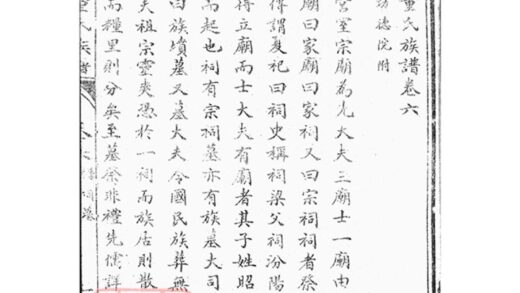 重氏族譜卷六
功德院附
宮室宗廟為先大夫三廟士一廟由
廟曰家廟曰家祠又曰宗祠祠者祭
得謂夏祀曰祠史稱祠梁父祠汾陽
得立廟而士大夫有廟者其子姓昭
而起也祠有宗祠墓亦有族墓大司
曰族墳墓又墓大夫令國民族葬無
夫祖宗靈爽憑於一祠而族居則散
而糧里別分矣至墓祭非禮先儒詳